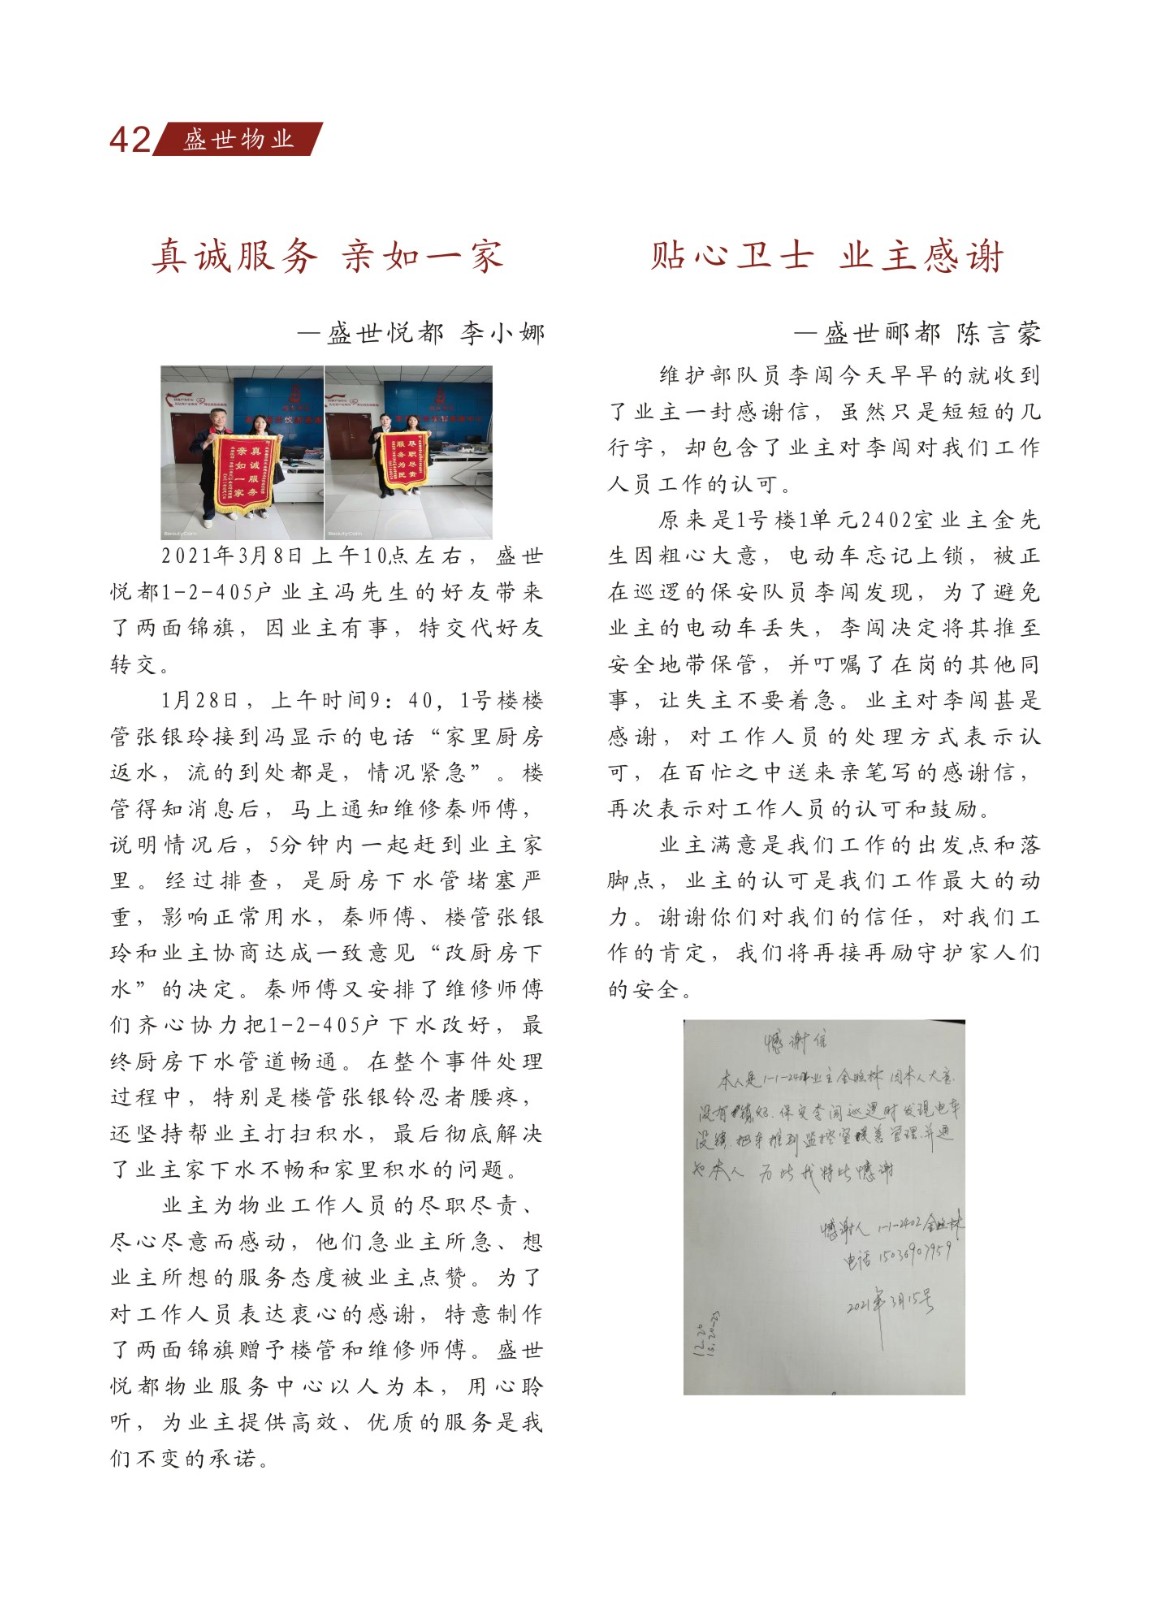 42 盛世物业
真诚服务 亲如一家
—盛世悦都 李小娜
真诚服务
亲如一家
尽职尽责
服务为民
2021年3月8日上午10点左右，盛世
悦都1-2-405户业主冯先生的好友带来
了两面锦旗，因业主有事，特交代好友
转交。
1月28日，上午时间9：40，1号楼楼
管张银玲接到冯显示的电话“家里厨房
返水，流的到处都是，情况紧急”。楼
管得知消息后，马上通知维修秦师傅，
说明情况后，5分钟内一起赶到业主家
里。经过排查，是厨房下水管堵塞严
重，影响正常用水，秦师傅、楼管张银
玲和业主协商达成一致意见“改厨房下
水”的决定。秦师傅又安排了维修师傅
们齐心协力把1-2-405户下水改好，最
终厨房下水管道畅通。在整个事件处理
过程中，特别是楼管张银铃忍者腰疼，
还坚持帮业主打扫积水，最后彻底解决
了业主家下水不畅和家里积水的问题。
业主为物业工作人员的尽职尽责、
尽心尽意而感动，他们急业主所急、想
业主所想的服务态度被业主点赞。为了
对工作人员表达衷心的感谢，特意制作
了两面锦旗赠予楼管和维修师傅。盛世
悦都物业服务中心以人为本，用心聆
听，为业主提供高效、优质的服务是我
们不变的承诺。
贴心卫士 业主感谢
—盛世郦都 陈言蒙
维护部队员李闯今天早早的就收到
了业主一封感谢信，虽然只是短短的几
行字，却包含了业主对李闯对我们工作
人员工作的认可。
原来是1号楼1单元2402室业主金先
生因粗心大意，电动车忘记上锁，被正
在巡逻的保安队员李闯发现，为了避免
业主的电动车丢失，李闯决定将其推至
安全地带保管，并叮嘱了在岗的其他同
事，让失主不要着急。业主对李闯甚是
感谢，对工作人员的处理方式表示认
可，在百忙之中送来亲笔写的感谢信，
再次表示对工作人员的认可和鼓励。
业主满意是我们工作的出发点和落
脚点，业主的认可是我们工作最大的动
力。谢谢你们对我们的信任，对我们工
作的肯定，我们将再接再励守护家人们
的安全。
感谢信
本人是1-1-2402业主金 林 因本人大意.
没有 保安李闯巡逻时发现电车
没锁.把车推到监控室 善管理.并通
知本人 为此我特此感谢
感谢人 1-1-2402 金 林
电话 15036907959
2021年3月15号